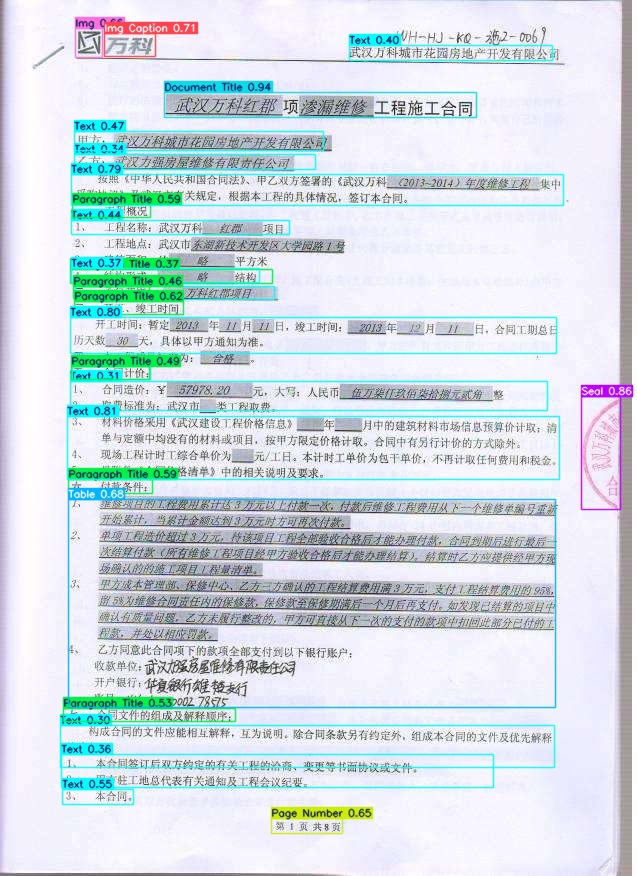 Img 0.66
Img Caption 0.71
万科
Text 0.40
WH-HJ-KQ-施2-0069
武汉万科城市花园房地产开发有限公司
Document Title 0.94
武汉万科红郡 项 渗漏维修 工程施工合同
Text 0.47
甲方：武汉万科城市花园房地产开发有限公司
Text 0.34
乙方：武汉力强房屋维修有限责任公司
Text 0.79
按照《中华人民共和国合同法》、甲乙双方签署的《武汉万科（2013-2014）年度维修工程 集中
有关规定，根据本工程的具体情况，签订本合同。
Paragraph Title 0.59
工程概况
Text 0.44
1、 工程名称：武汉万科 红郡 项目
2、 工程地点：武汉市东湖新技术开发区大学园路1号
略 平方米
Text 0.37
Title 0.37
略 结构
Paragraph Title 0.46
万科红郡项目
Paragraph Title 0.62
、竣工时间
Text 0.80
开工时间：暂定 2013 年 11 月 11 日，竣工时间： 2013 年 12 月 11 日，合同工期总日
历天数 30 天，具体以甲方通知为准。
Paragraph Title 0.49
为： 合格 。
Text 0.31
计价：
1、 合同造价：¥ 57978.20 元，大写：人民币 伍万柒仟玖佰柒拾捌元贰角 整
标准为：武汉市 类工程取费。
Text 0.81
3、 材料价格采用《武汉建设工程价格信息》 年 月中的建筑材料市场信息预算价计取；清
单与定额中均没有的材料或项目，按甲方限定价格计取。合同中有另行计价的方式除外。
4、 现场工程计时工综合单价为 元/工日。本计时工单价为包干单价，不再计取任何费用和税金。
格清单》中的相关说明及要求。
Paragraph Title 0.59
付款条件：
Table 0.68
1、 维修项目的工程费用累计达3万元以上付款一次，付款后维修工程费用从下一个维修单编号重新
开始累计，当累计金额达到3万元时方可再次付款。
2、 单项工程造价超过3万元，待该项目工程全部验收合格后才能办理付款，合同到期后进行最后一
次结算付款（所有维修工程项目经甲方验收合格后才能办理结算）。结算时乙方应提供经甲方现
场确认的的施工项目工程量清单。
3、 甲方成本管理部、保修中心、乙方三方确认的工程结算费用满3万元，支付工程结算费用的95%，
留5%为维修合同责任内的保修款，保修款至保修期满后一个月后再支付。如发现已结算的项目中
确认有质量问题，乙方未履行整改的，甲方可直接从下一次的支付的款项中扣回此部分已付的工
程款，并处以相应罚款。
4、 乙方同意此合同项下的款项全部支付到以下银行账户：
收款单位：武汉力强房屋维修有限责任公司
开户银行：华夏银行雄楚支行
000278515
Paragraph Title 0.53
合同文件的组成及解释顺序：
Text 0.30
构成合同的文件应能相互解释，互为说明。除合同条款另有约定外，组成本合同的文件及优先解释
Text 0.36
1、 本合同签订后双方约定的有关工程的洽商、变更等书面协议或文件。
驻工地总代表有关通知及工程会议纪要。
Text 0.55
3、 本合同。
Seal 0.86
武汉万科
合
Page Number 0.65
第 1 页 共 8 页